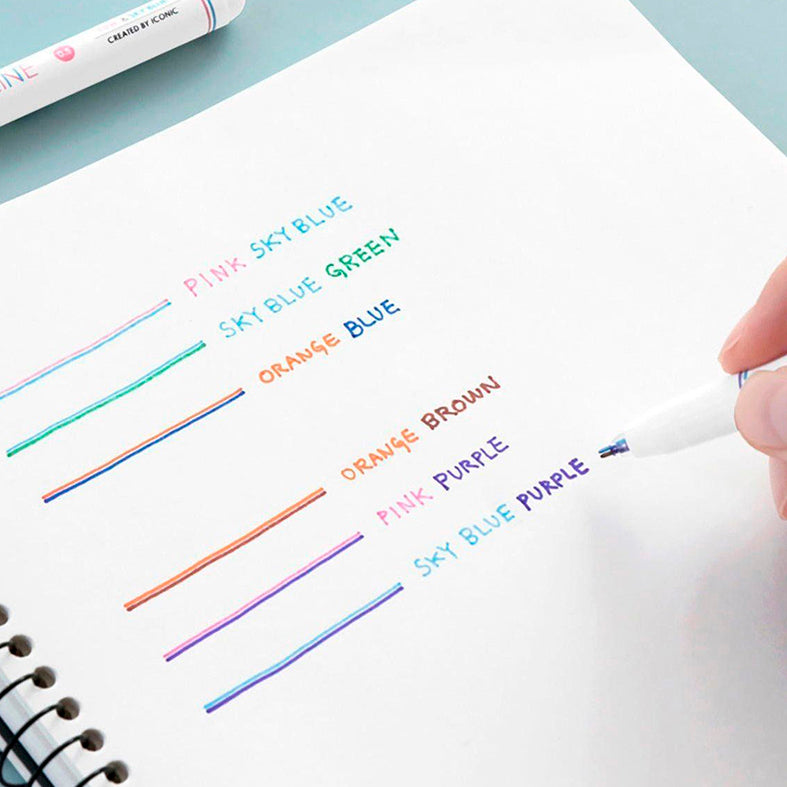 & SKY BLUE
CREATED BY ICONIC
INE
0.5
PINK SKY BLUE
SKY BLUE GREEN
ORANGE BLUE
ORANGE BROWN
PINK PURPLE
SKY BLUE PURPLE